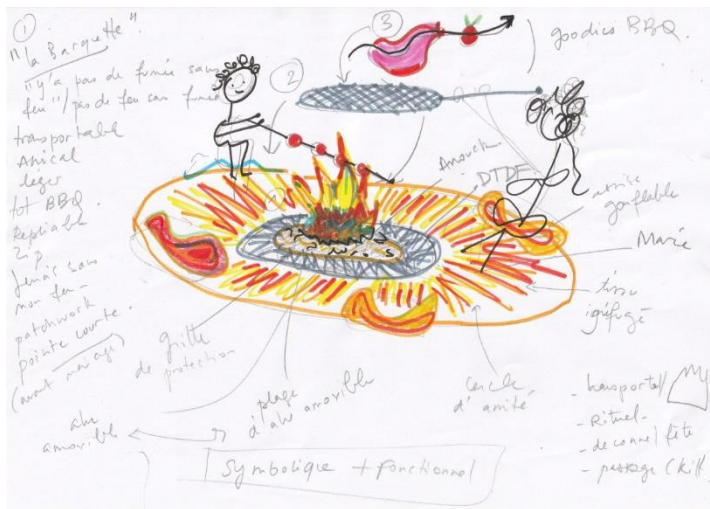 ①
"la Barquette".
"y'a pas de fumée sans
feu"/pas de feu sans fumée
transportable
Amical
léger
tot BBQ.
Repliable
2 p
Jamais sans
mon feu -
patchwork
pointe courte.
(avant mariage)
alu
amovible
②
③
goodies BBQ.
Anouck
DTDE
assise
gonflable
Marie
tissu
ignifugé
grille
de protection
plage
d'alu amovible
cercle
d'amitié
symbolique + fonctionnel
- transportable
- Rituel -
- deconne/fête
- passage (kill